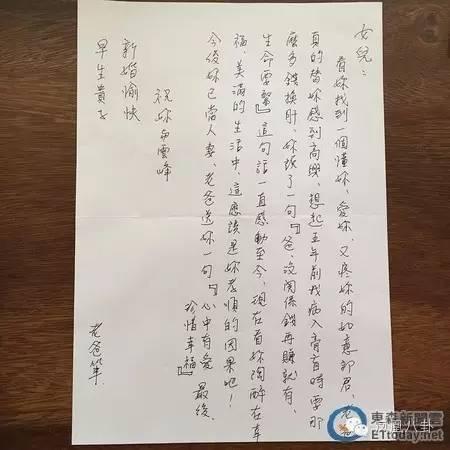 女兒：
看妳找到一個懂妳、愛妳、又疼妳的如意郎君、老爸
真的替妳感到高興、想起五年前我病入膏肓時要那
麼多錢換肝、妳說了一句『爸、沒關係錢再賺就有、
生命要緊』這句話一直感動至今、現在看妳陶醉在幸
福、美滿的生活中、這應該是妳孝順的因果吧！
今後妳已當人妻、老爸送妳一句『心中有愛 最後、
珍惜幸福』
祝妳與雲峰
新婚愉快
早生貴子
老爸筆.
東森新聞雲
ETtoday.net
凤凰八卦